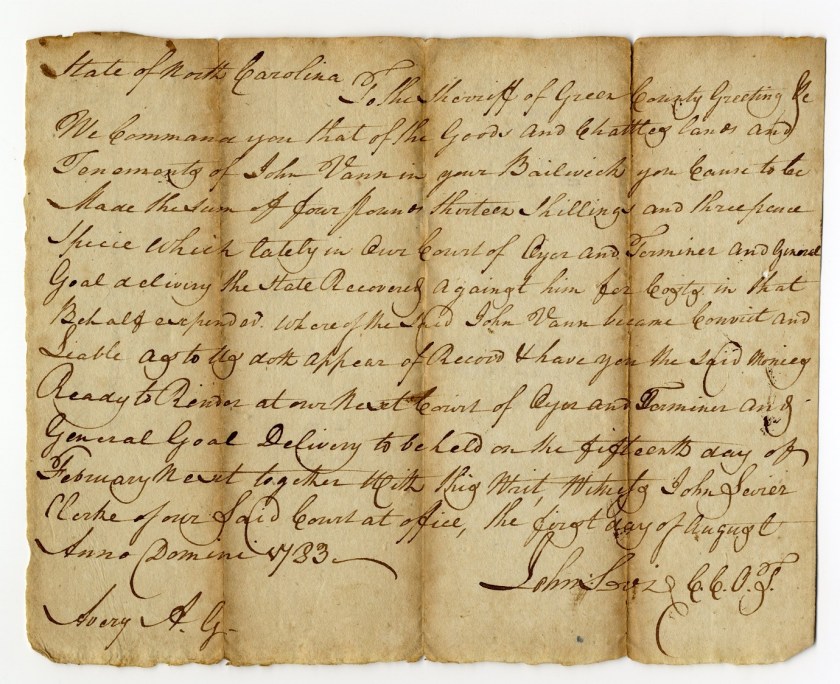 State of North Carolina
To the Sherriff of Green County Greeting
We Command you that of the Goods and Chattles lands and
Tenements of John Vann in your Bailweck you Cause to be
Made the Sum of four pounds thirteen Shillings and three pence
Specie which lately in Our Court of Oyer and Terminer and General
Goal delivery the State Recovered Against him for Costs in that
Behalf expended. Where of the Said John Vann became Convict and
Liable as to us doth appear of Record & have you the Said Monies
Ready to Render at our Next Court of Oyer and Terminer and
General Goal Delivery to be held on the fifteenth day of
February Next together With this Writ, Witness John Sevier
Clerke of our Said Court at office, the first day of August
Anno Domini 1783
John Sevier C.C.O.T.
Avery A. G.